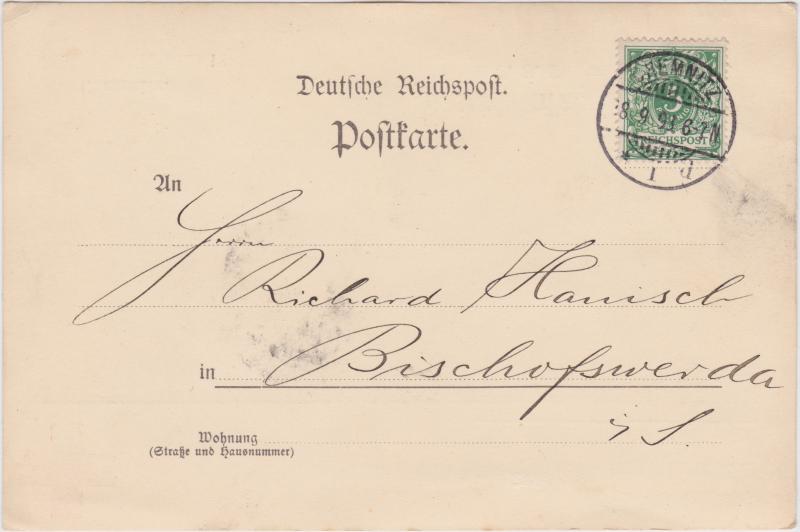 Deutsche Reichspost.
Postkarte.
CHEMNITZ
8.9.94.6-7N
1 d
5
REICHSPOST
An
Herrn
Richard Hanisch
in Bischofswerda
i/S.
Wohnung
(Straße und Hausnummer)